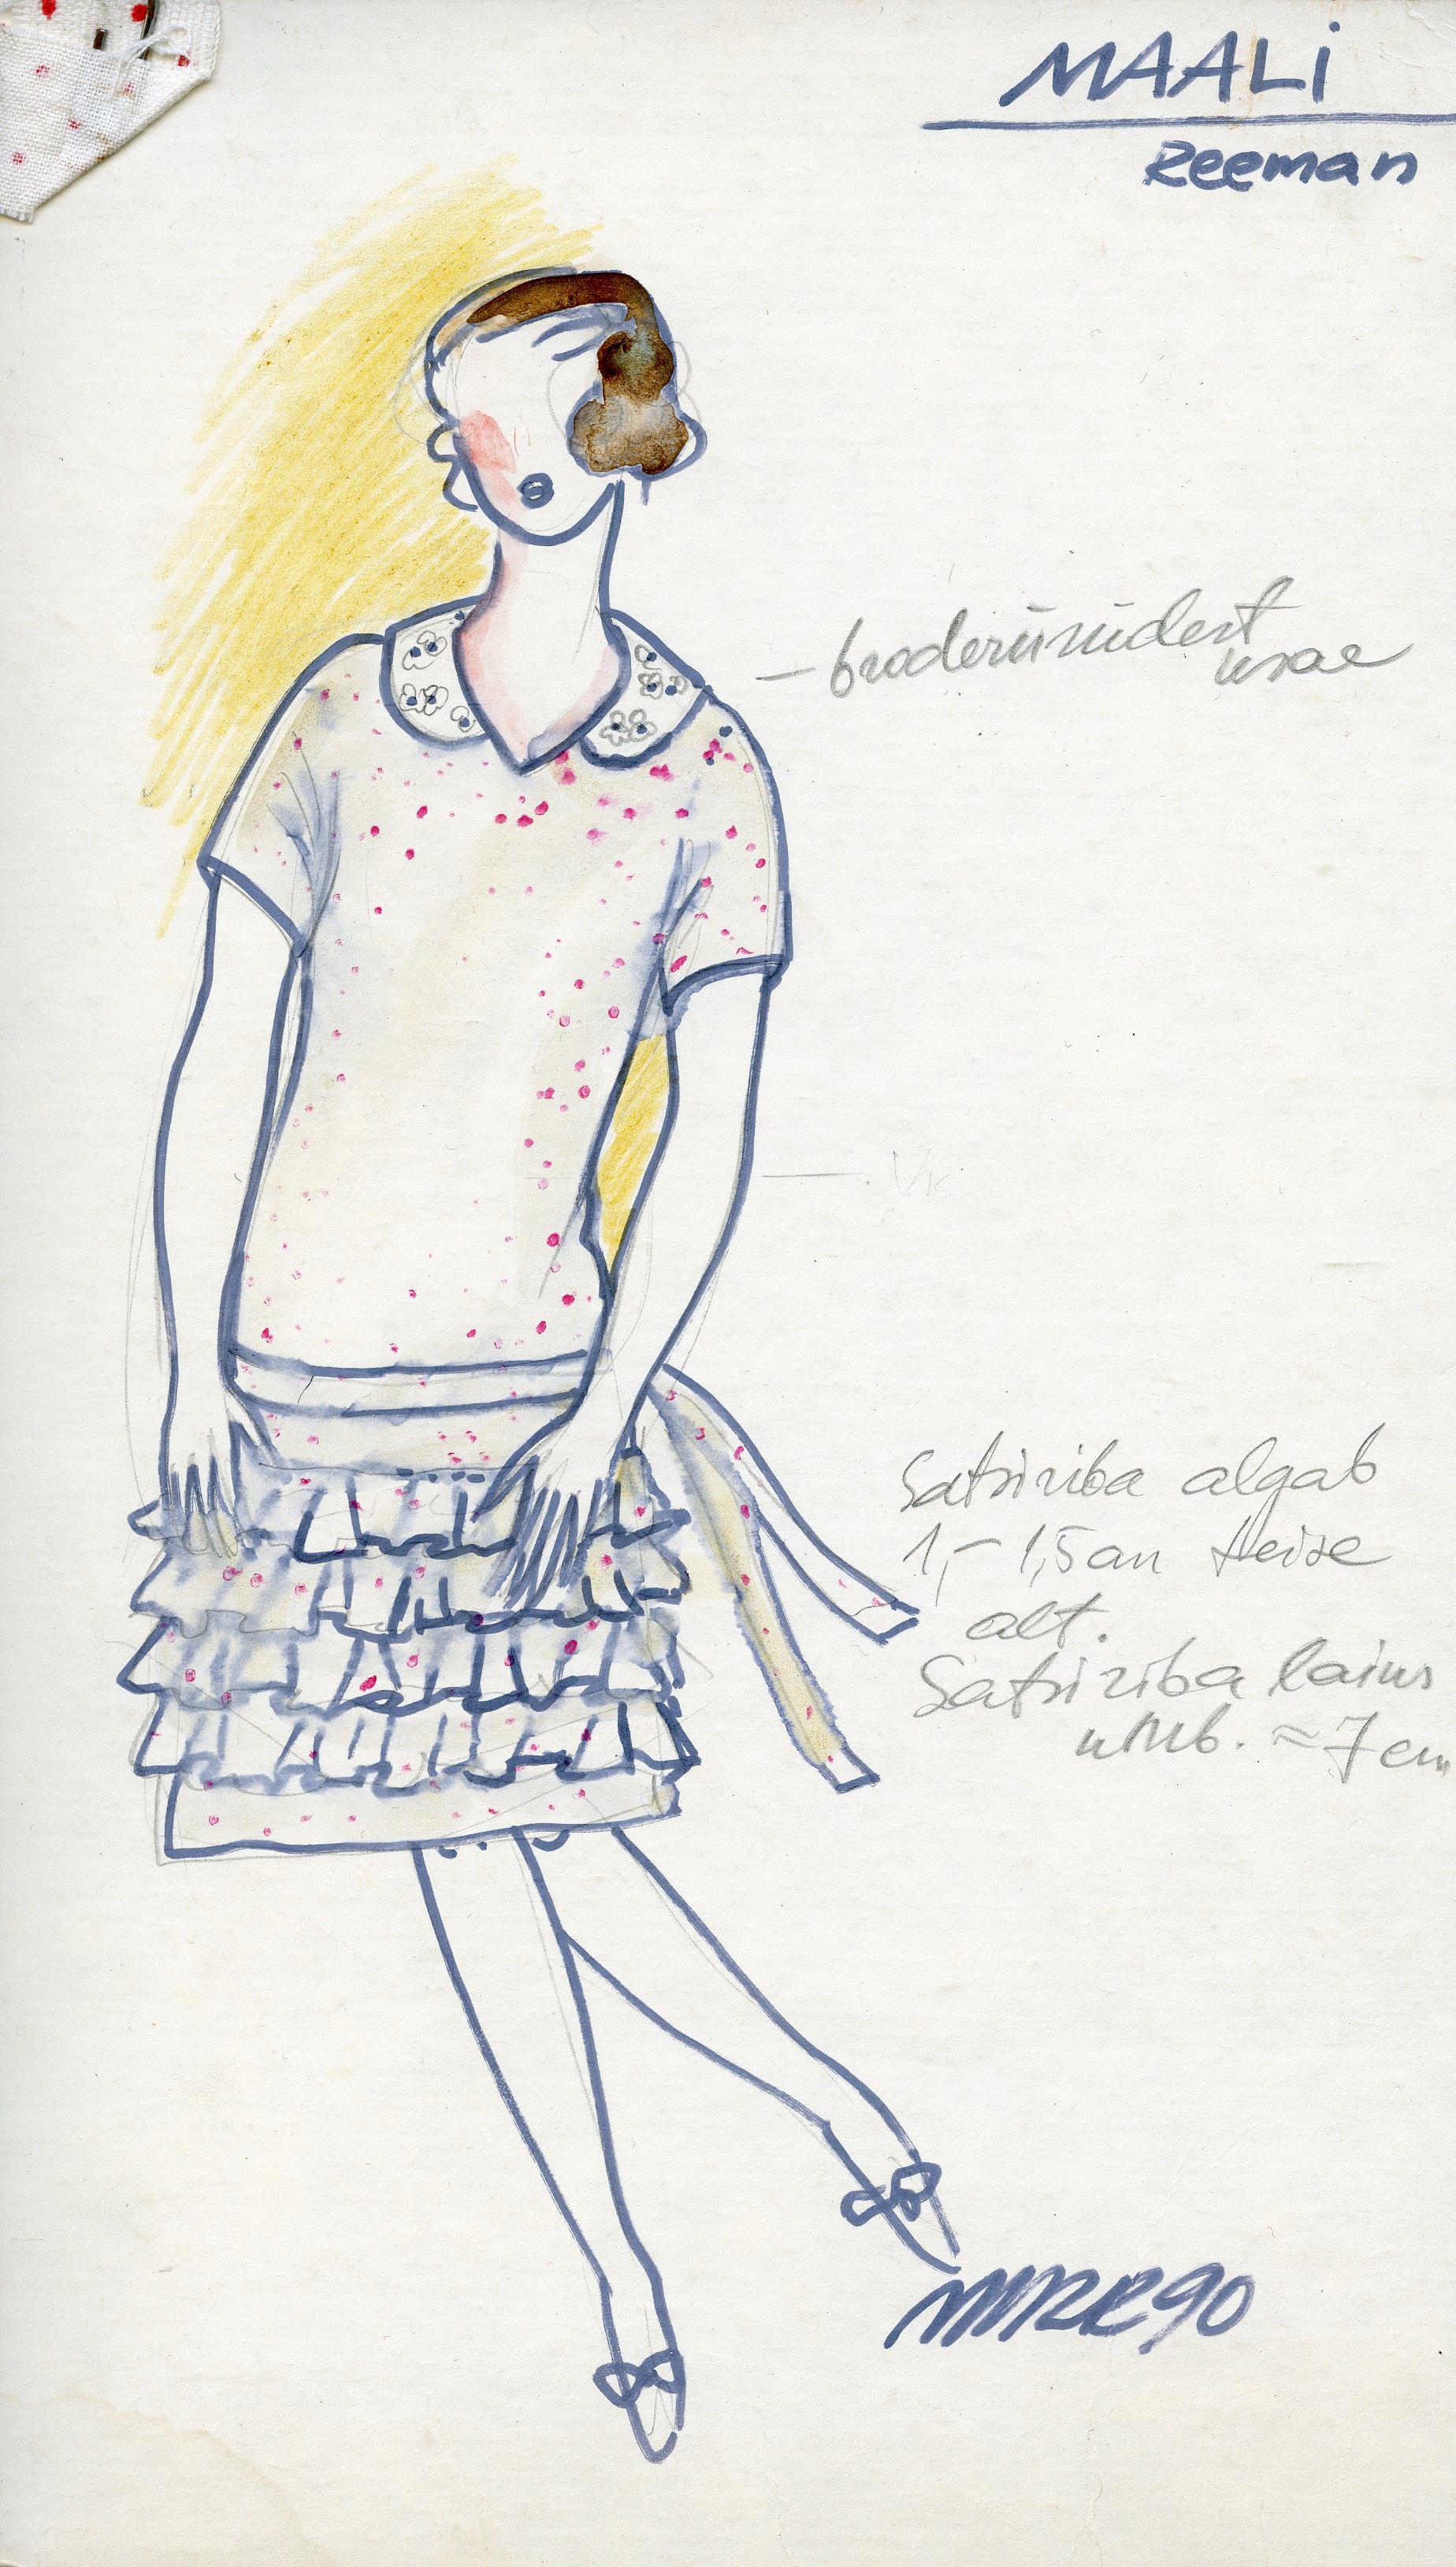 MAALi
Reeman
– broderiisidest
krae
Satsiriba algab
1,– 1,5 cm teise
alt.
Satsiriba laius
umb. ≈ 7 cm
90